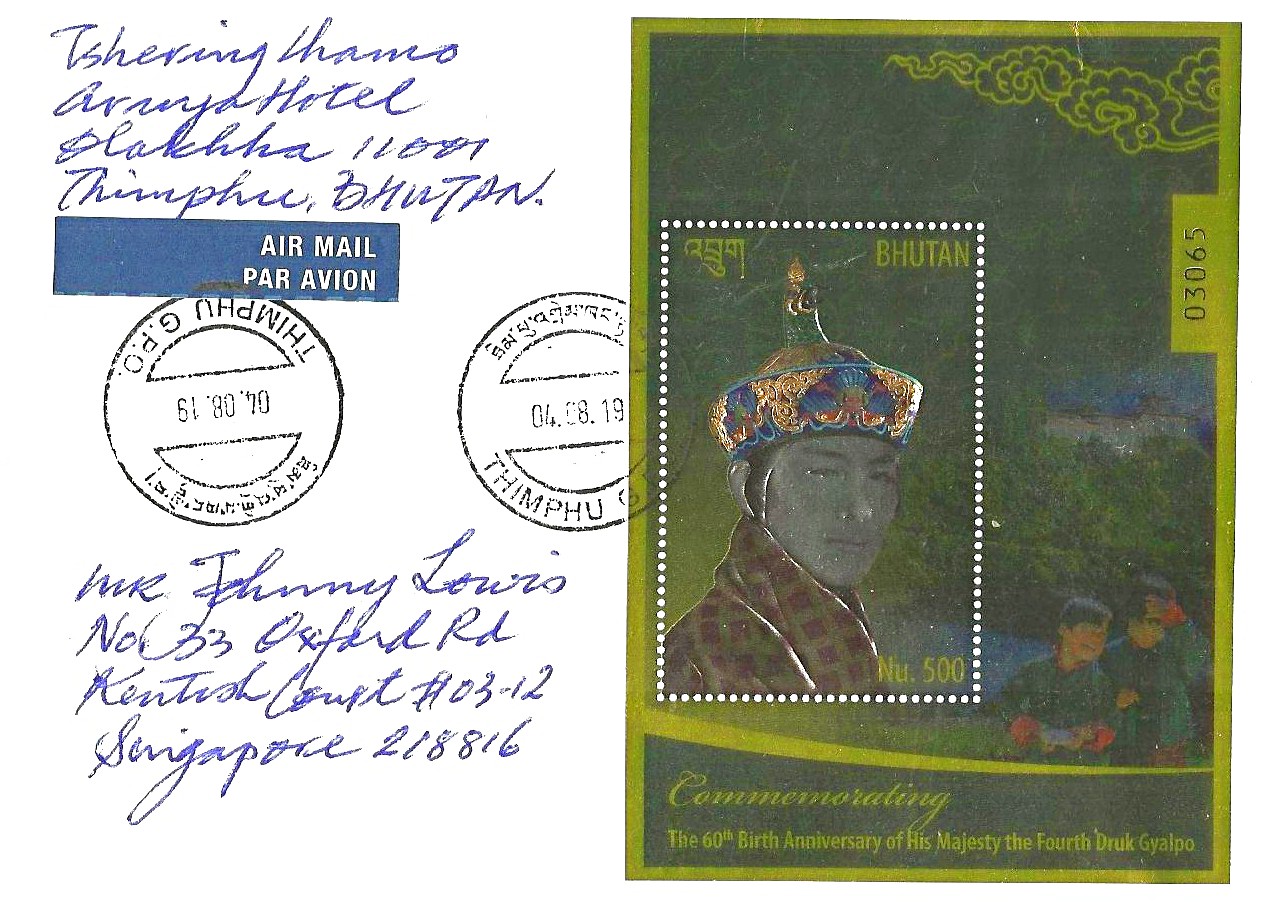 Tshering Lhamo
Aranya Hotel
Olakhha 11001
Thimphu, BHUTAN.
AIR MAIL
PAR AVION
THIMPHU G.P.O.
04.08.19
04.08.19
THIMPHU G
འབྲུག
BHUTAN
03065
Nu. 500
Mr Johnny Lowis
No 33 Oxford Rd
Kentish Court #03-12
Singapore 218816
Commemorating
The 60th Birth Anniversary of His Majesty the Fourth Druk Gyalpo